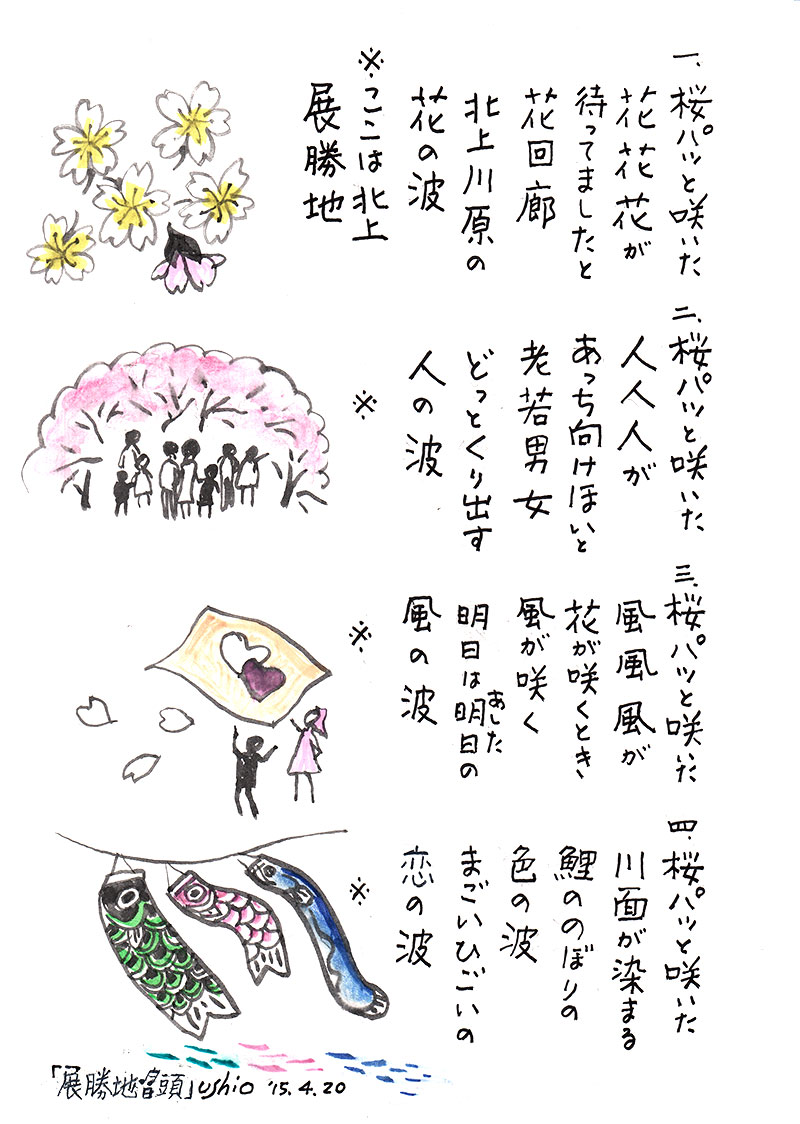 一、桜パッと咲いた
花花花が
待ってましたと
花回廊
北上川原の
花の波
※ここは北上
展勝地
二、桜パッと咲いた
人人人が
あっち向けほいと
老若男女
どっとくり出す
人の波
※
三、桜パッと咲いた
風風風が
花が咲くとき
風が咲く
明日は明日の
あした
風の波
※
四、桜パッと咲いた
川面が染まる
鯉ののぼりの
色の波
まごいひごいの
恋の波
※
「展勝地音頭」ushio '15.4.20